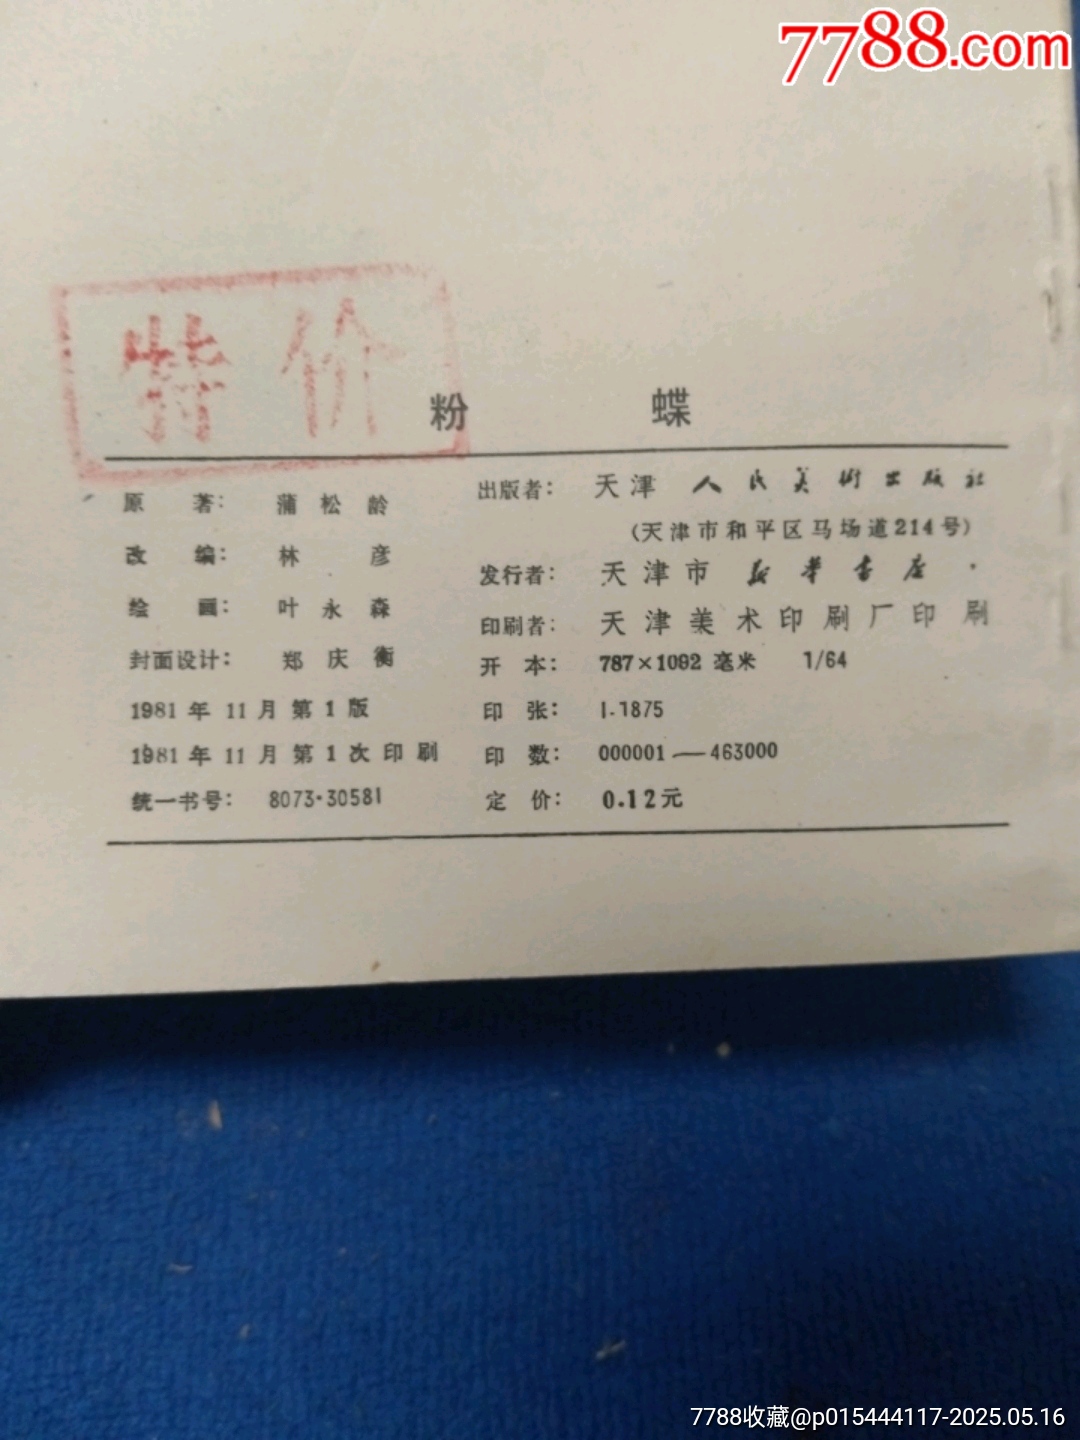 7788.com
特价
粉 蝶
原 著： 蒲 松 龄
改 编： 林 彦
绘 画： 叶 永 森
封面设计： 郑 庆 衡
1981 年 11 月 第 1 版
1981 年 11 月 第 1 次 印 刷
统一书号： 8073·30581
出版者： 天津 人民美術出版社
(天津市和平区马场道214号)
发行者： 天津市 新华书店
印刷者： 天津美术印刷厂印刷
开 本： 787×1092 毫米 1/64
印 张： 1.1875
印 数： 000001—463000
定 价： 0.12元
7788收藏@p015444117-2025.05.16